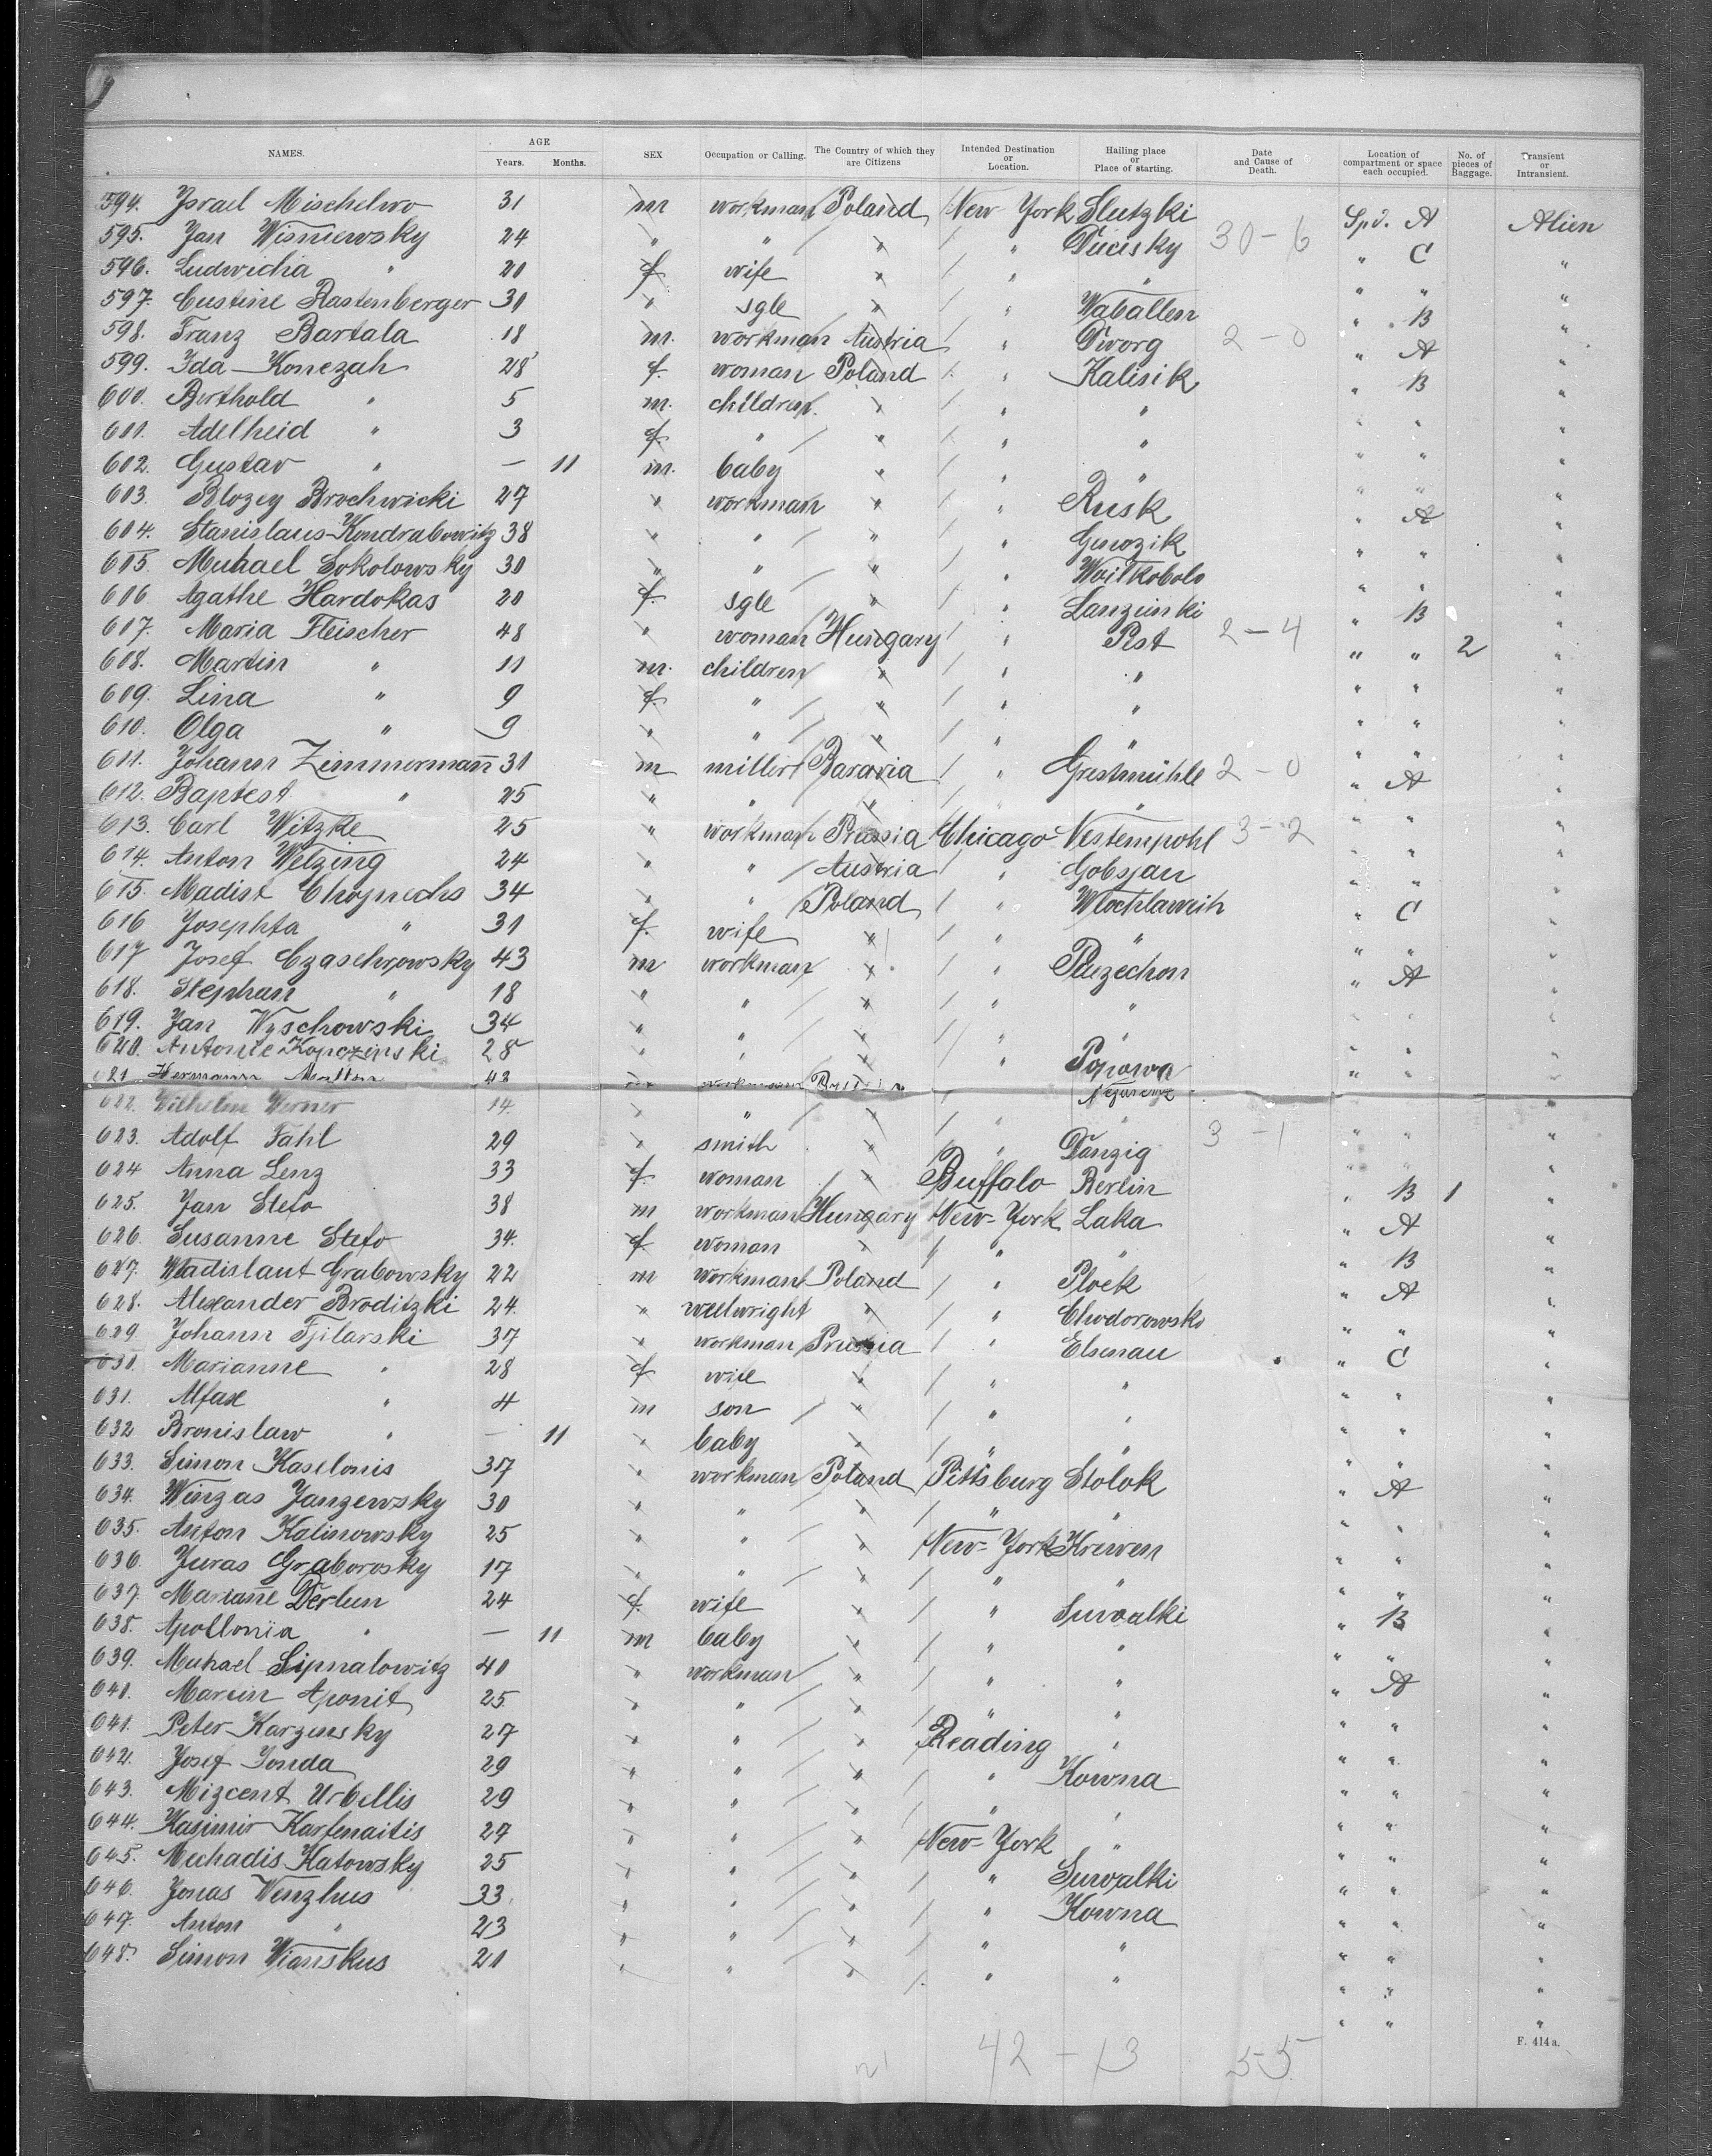 NAMES. AGE Years. Months. SEX Occupation or Calling. The Country of which they are Citizens Intended Destination or Location. Hailing place or Place of starting. Date and Cause of Death. Location of compartment or space each occupied. No. of pieces of Baggage. Transient or Intransient.
594. Israel Mischelwo 31 m workman Poland New York Slutzki Spd. A Alien
595. Jan Wisniewsky 24 " " " " 30-6 " C "
596. Ludwicha " 20 f wife " " " " " "
597. Custine Rastenberger 30 " sgle " " Waballen " B "
598. Franz Bartala 18 m. workman Austria " Dworg 2-0 " A "
599. Ida Konezah 28 f. woman Poland " Kalisik " B "
600. Berthold " 5 m. children " " " " " "
601. Adelheid " 3 f. " " " " " " "
602. Gustav " — 11 m. baby " " " " " "
603. Blozey Brochwicki 27 " workman " " Rusk " A "
604. Stanislaus Kondrabowitz 38 " " " " Gnozik " " "
605. Michael Sokolowsky 30 " " " " Woitkobolo " " "
606. Agathe Hardokas 20 f. sgle " " Lanzunki " B "
607. Maria Fleischer 48 " woman Hungary " Pest 2-4 " " 2 "
608. Martin " 11 m. children " " " " " "
609. Lina " 9 f. " " " " " " "
610. Olga " 9 " " " " " " " "
611. Johann Zimmermann 31 m miller Bavaria " Grestmühle 2-0 " A "
612. Baptest " 25 " " " " " " " "
613. Carl Witzke 25 " workman Prussia Chicago Nestempohl 3-2 " " "
614. Anton Welzing 24 " " Austria " Gobsjan " " "
615. Madist Chojnechs 34 " " Poland " Wlochlawich " C "
616 Josephta " 31 f. wife " " " " " "
617 Josef Czaschrowsky 43 m workman " " Puzechon " A "
618. Stephan " 18 " " " " " " " "
619. Jan Wyschowski 34 " " " " " " " "
620. Antonie Kopczinski 28 " " " " Popowa " " "
621 Hermann 43 m workman
622. Wilhelm Werner 14 " " " " " "
623. Adolf Fahl 29 " smith " " Danzig 3-1 " " "
624 Anna Lenz 33 f. woman " Buffalo Berlin " B 1 "
625. Jan Stefo 38 m workman Hungary New-York Laka " A "
626. Susanne Stefo 34. f. woman " " " " B "
627. Wladislaut Grabowsky 22 m workman Poland " Plock " A "
628. Alexander Broditzki 24. " weelwright " " Chodorowsko " " "
629. Johann Tjilarski 37 " workman Prussia " Elsenau " C "
630. Marianne " 28 f wife " " " " " "
631. Alfax " 4 m son " " " " " "
632 Bronislaw " — 11 " baby " " " " " "
633. Simon Kaselonis 37 " workman Poland Pittsburg Stolok " A "
634. Winzas Janzewsky 30 " " " " " " " "
635. Anton Kalinowsky 25 " " " New-York Krewen " " "
636. Juras Graborosky 17 " " " " " " " "
637. Marianne Derlun 24 f. wife " " Suwalki " B "
638. Apollonia " — 11 m baby " " " " " "
639. Michael Sipnalowitz 40 " workman " " " " A "
640. Martin Aponit 25 " " " " " " " "
641. Peter Karzinsky 27 " " " Reading " " " "
642. Josef Jonda 29 " " " " Kowna " " "
643. Mizcent Urbellis 29 " " " " " " " "
644. Kasimir Karfenaitis 27 " " " New-York " " " "
645. Michadis Katowsky 25 " " " " Suwalki " " "
646. Jonas Wenzhus 33 " " " " Kowna " " "
647. Anton " 23 " " " " " " " "
648. Simon Wianskus 21 " " " " " " " "
F. 414 a.
42-13 55